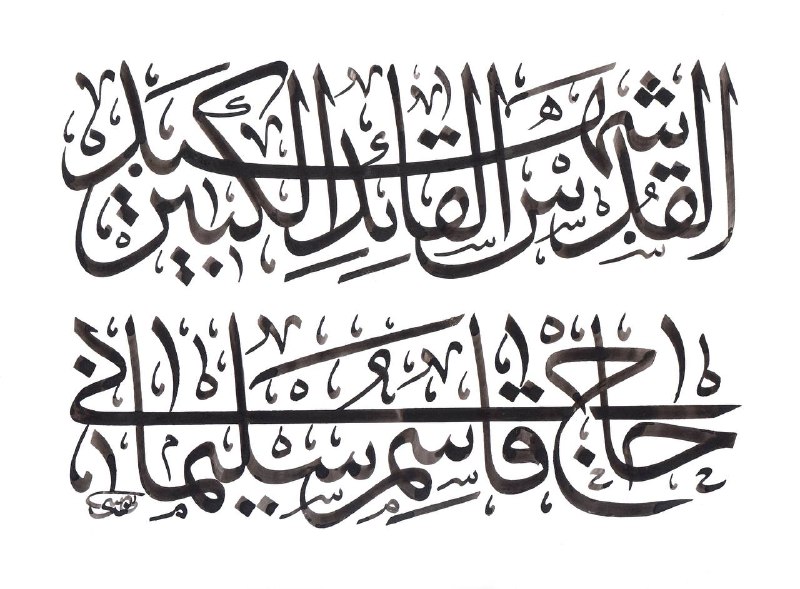 شهيد القدس القائد الكبير
حاج قاسم سليمانى